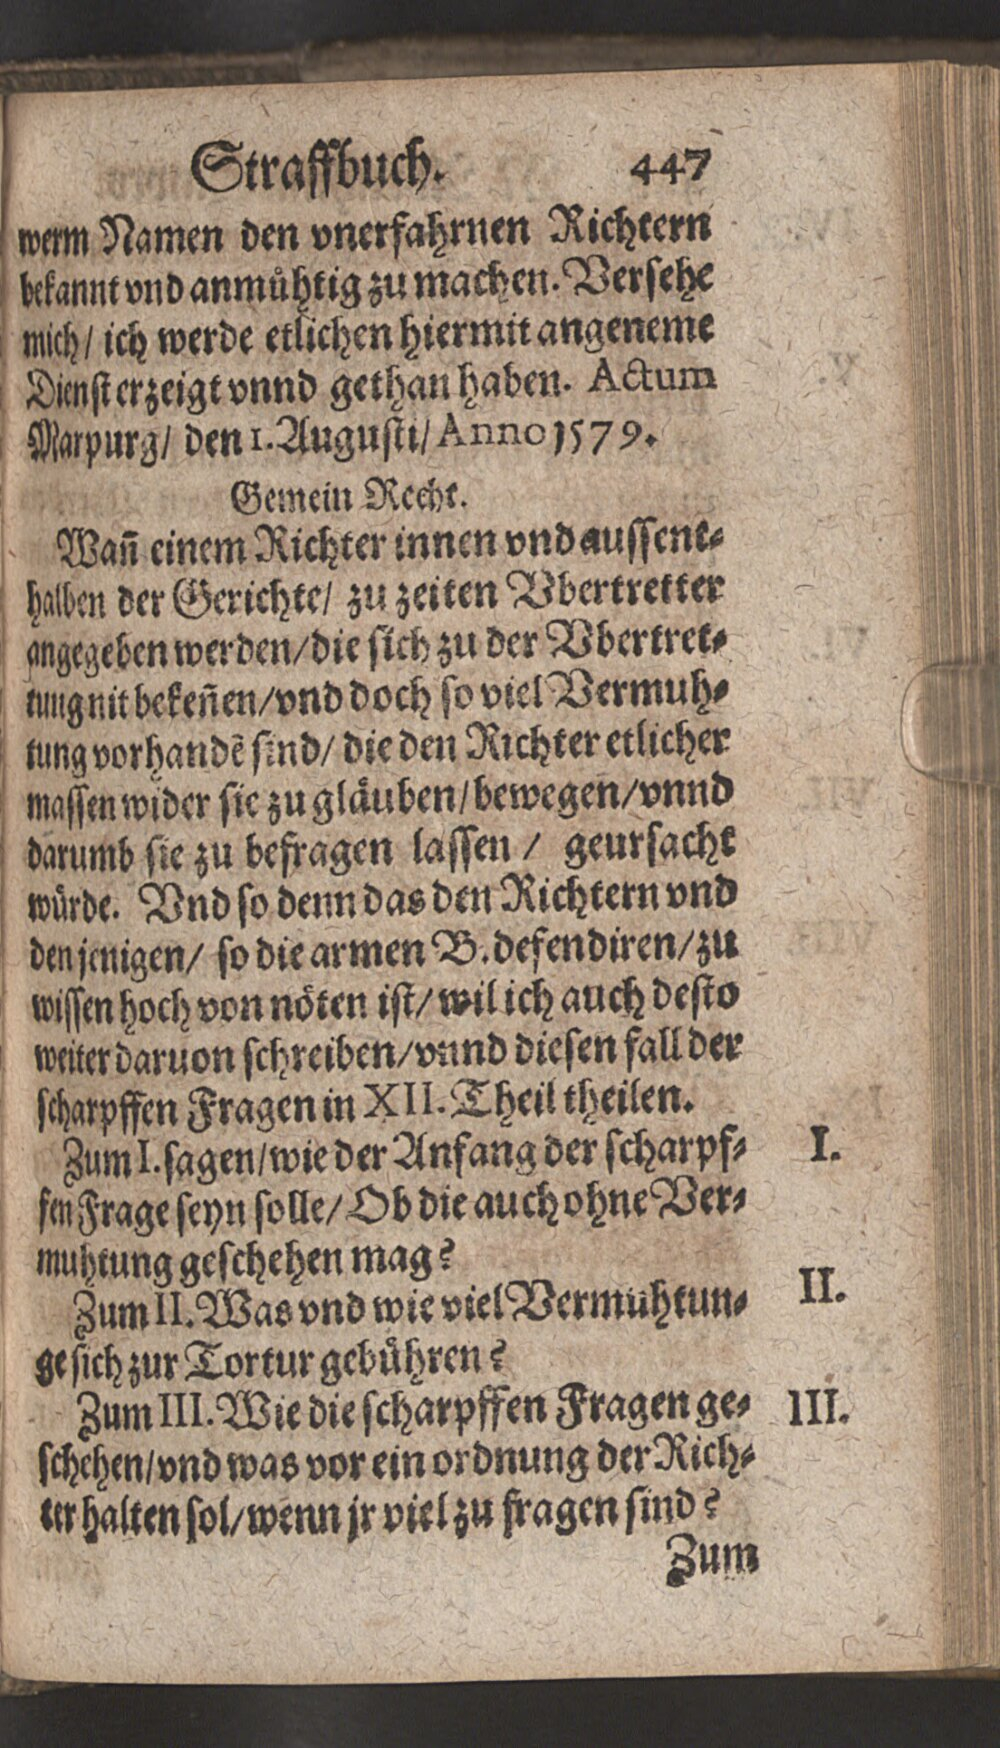 Straffbuch. 447
werm Namen den vnerfahrnen Richtern
bekannt vnd anmühtig zu machen. Versehe
mich/ ich werde etlichen hiermit angeneme
Dienst erzeigt vnnd gethan haben. Actum
Marpurg/ den 1. Augusti/ Anno 1579.
Gemein Recht.
Wañ einem Richter innen vnd aussent-
halben der Gerichte/ zu zeiten Vbertretter
angegeben werden/ die sich zu der Vbertret-
tung nit bekeñen/ vnd doch so viel Vermuh-
tung vorhandẽ sind/ die den Richter etlicher
massen wider sie zu gläuben/ bewegen/ vnnd
darumb sie zu befragen lassen/ geursacht
würde. Vnd so denn das den Richtern vnd
den jenigen/ so die armen B. defendiren/ zu
wissen hoch von nöten ist/ wil ich auch desto
weiter daruon schreiben/ vnnd diesen fall der
scharpffen Fragen in XII. Theil theilen.
Zum I. sagen/ wie der Anfang der scharpf- I.
fen Frage seyn solle/ Ob die auch ohne Ver-
muhtung geschehen mag?
Zum II. Was vnd wie viel Vermuhtun- II.
ge sich zur Tortur gebühren?
Zum III. Wie die scharpffen Fragen ge- III.
schehen/ vnd was vor ein ordnung der Rich-
ter halten sol/ wenn jr viel zu fragen sind?
Zum